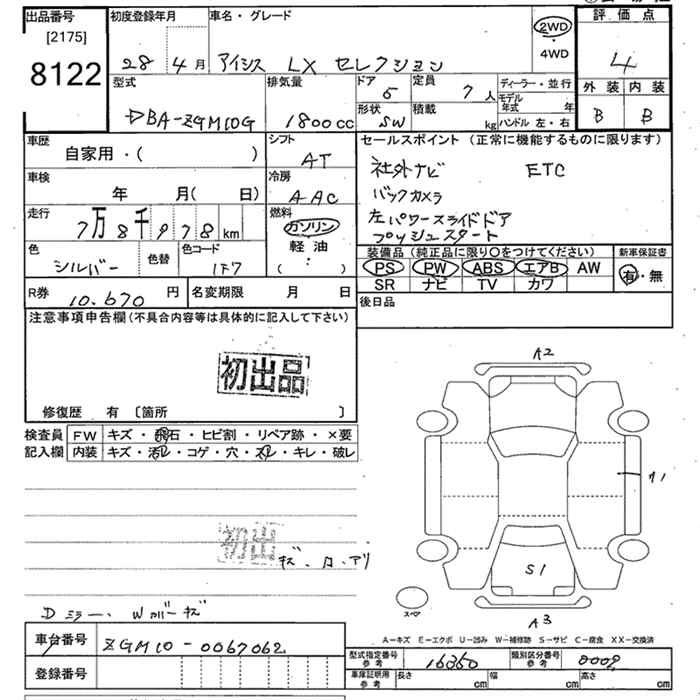 出品番号
[2175]
8122
初度登録年月
28 4月
車名・グレード
アイシス LX セレクション
2WD
4WD
評価点
4
外装 内装
B B
型式
DBA-ZGM10G
排気量
1800cc
ドア
5
定員
7人
形状
SW
積載
kg
ディーラー・並行
モデル年式 年
ハンドル 左・右
車歴
自家用・( )
シフト
AT
車検
年 月( 日)
冷房
AAC
走行
7万8千978km
燃料
ガソリン
軽油
( : )
色
シルバー
色替
色コード
1F7
R券
10.670円
名変期限 月 日
セールスポイント (正常に機能するものに限ります)
社外ナビ ETC
バックカメラ
左パワースライドドア
プッシュスタート
装備品(純正品に限り○をつけてください)
PS PW ABS エアB AW
SR ナビ TV カワ
新車保証書
有・無
後日品
注意事項申告欄(不具合内容等は具体的に記入して下さい)
初出品
修復歴 有 〔箇所 〕
検査員
記入欄
FW キズ・飛石・ヒビ割・リペア跡・×要
内装 キズ・汚レ・コゲ・穴・スレ・キレ・破レ
初出
Dミラー、Wカバーキズ
A2
A1
S1
A3
スペア
A−キズ E−エクボ U−凹み W−補修跡 S−サビ C−腐食 XX−交換済
車台番号
ZGM10-0067062
登録番号
型式指定番号
参考
16360
類別区分番号
参考
0009
車庫証明用
参考
長さ cm 幅 cm 高さ cm